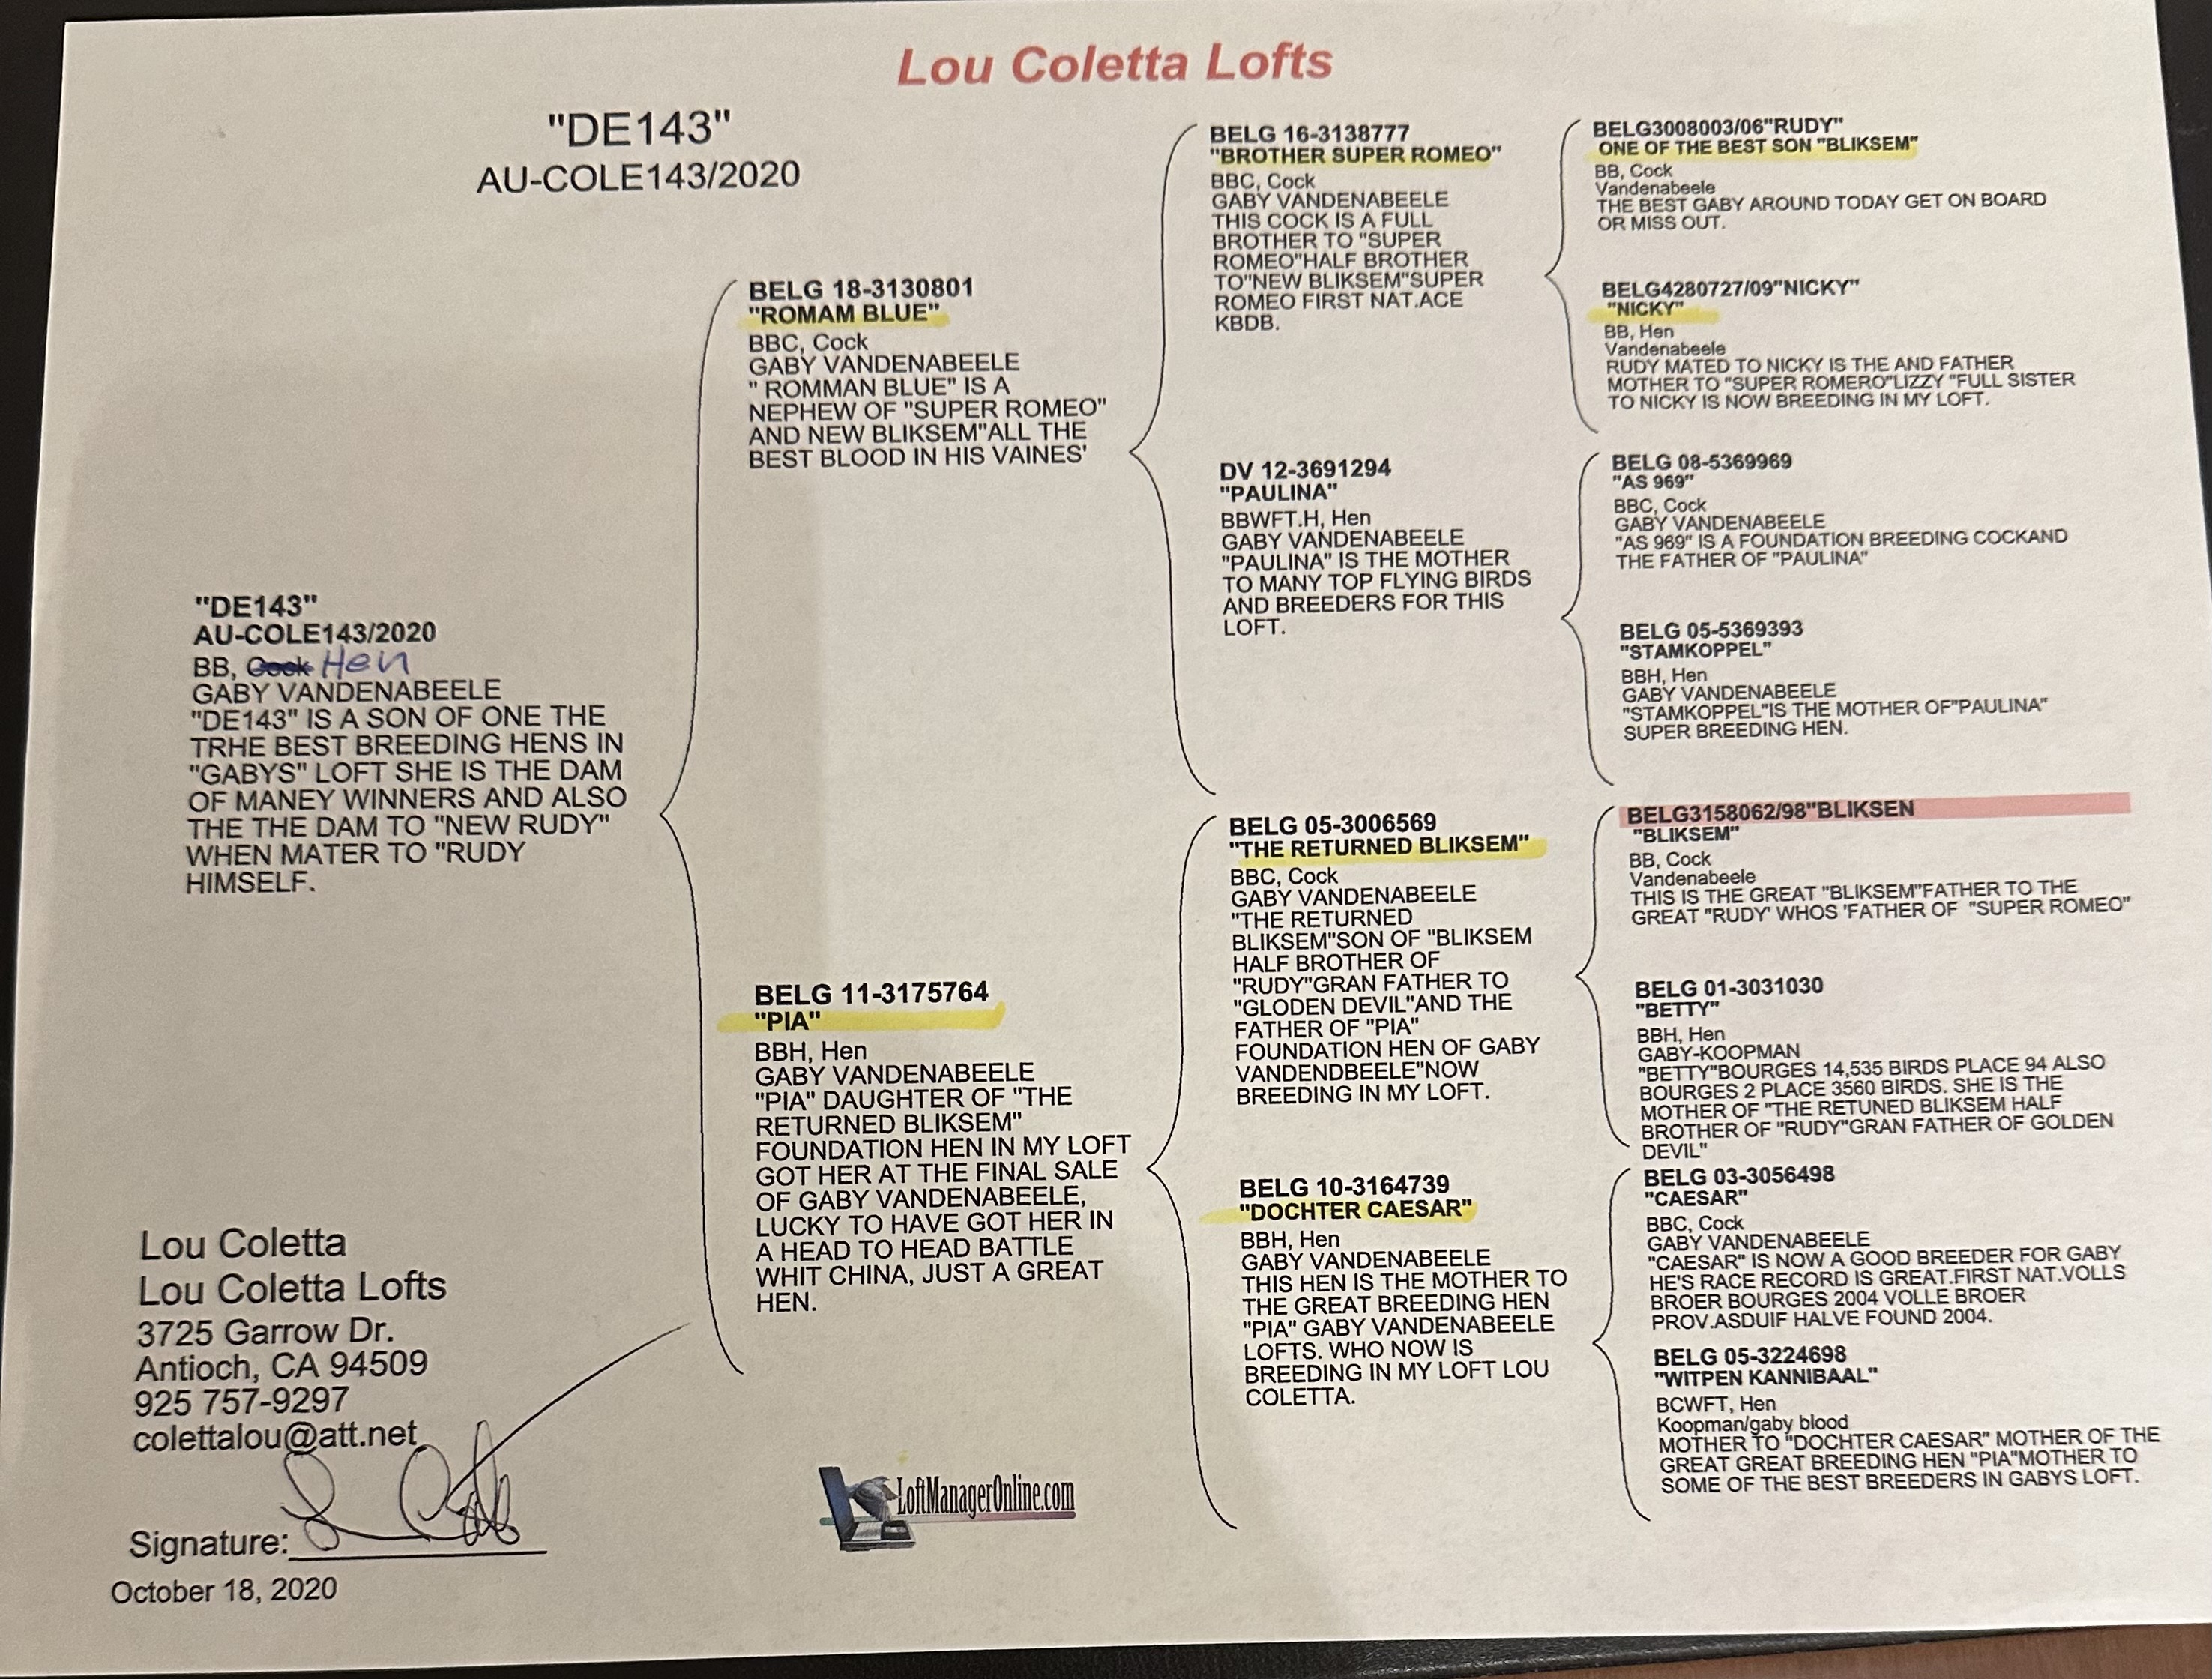 Lou Coletta Lofts
"DE143"
AU-COLE143/2020
"DE143"
AU-COLE143/2020
BB, Cock Hen
GABY VANDENABEELE
"DE143" IS A SON OF ONE THE
TRHE BEST BREEDING HENS IN
"GABYS" LOFT SHE IS THE DAM
OF MANEY WINNERS AND ALSO
THE THE DAM TO "NEW RUDY"
WHEN MATER TO "RUDY
HIMSELF.
BELG 18-3130801
"ROMAM BLUE"
BBC, Cock
GABY VANDENABEELE
" ROMMAN BLUE" IS A
NEPHEW OF "SUPER ROMEO"
AND NEW BLIKSEM"ALL THE
BEST BLOOD IN HIS VAINES'
BELG 11-3175764
"PIA"
BBH, Hen
GABY VANDENABEELE
"PIA" DAUGHTER OF "THE
RETURNED BLIKSEM"
FOUNDATION HEN IN MY LOFT
GOT HER AT THE FINAL SALE
OF GABY VANDENABEELE,
LUCKY TO HAVE GOT HER IN
A HEAD TO HEAD BATTLE
WHIT CHINA, JUST A GREAT
HEN.
BELG 16-3138777
"BROTHER SUPER ROMEO"
BBC, Cock
GABY VANDENABEELE
THIS COCK IS A FULL
BROTHER TO "SUPER
ROMEO"HALF BROTHER
TO"NEW BLIKSEM"SUPER
ROMEO FIRST NAT.ACE
KBDB.
DV 12-3691294
"PAULINA"
BBWFT.H, Hen
GABY VANDENABEELE
"PAULINA" IS THE MOTHER
TO MANY TOP FLYING BIRDS
AND BREEDERS FOR THIS
LOFT.
BELG 05-3006569
"THE RETURNED BLIKSEM"
BBC, Cock
GABY VANDENABEELE
"THE RETURNED
BLIKSEM"SON OF "BLIKSEM
HALF BROTHER OF
"RUDY"GRAN FATHER TO
"GLODEN DEVIL"AND THE
FATHER OF "PIA"
FOUNDATION HEN OF GABY
VANDENDBEELE"NOW
BREEDING IN MY LOFT.
BELG 10-3164739
"DOCHTER CAESAR"
BBH, Hen
GABY VANDENABEELE
THIS HEN IS THE MOTHER TO
THE GREAT BREEDING HEN
"PIA" GABY VANDENABEELE
LOFTS. WHO NOW IS
BREEDING IN MY LOFT LOU
COLETTA.
BELG3008003/06"RUDY"
ONE OF THE BEST SON "BLIKSEM"
BB, Cock
Vandenabeele
THE BEST GABY AROUND TODAY GET ON BOARD
OR MISS OUT.
BELG4280727/09"NICKY"
"NICKY"
BB, Hen
Vandenabeele
RUDY MATED TO NICKY IS THE AND FATHER
MOTHER TO "SUPER ROMERO"LIZZY "FULL SISTER
TO NICKY IS NOW BREEDING IN MY LOFT.
BELG 08-5369969
"AS 969"
BBC, Cock
GABY VANDENABEELE
"AS 969" IS A FOUNDATION BREEDING COCKAND
THE FATHER OF "PAULINA"
BELG 05-5369393
"STAMKOPPEL"
BBH, Hen
GABY VANDENABEELE
"STAMKOPPEL"IS THE MOTHER OF"PAULINA"
SUPER BREEDING HEN.
BELG3158062/98"BLIKSEN
"BLIKSEM"
BB, Cock
Vandenabeele
THIS IS THE GREAT "BLIKSEM"FATHER TO THE
GREAT "RUDY' WHOS 'FATHER OF "SUPER ROMEO"
BELG 01-3031030
"BETTY"
BBH, Hen
GABY-KOOPMAN
"BETTY"BOURGES 14,535 BIRDS PLACE 94 ALSO
BOURGES 2 PLACE 3560 BIRDS. SHE IS THE
MOTHER OF "THE RETUNED BLIKSEM HALF
BROTHER OF "RUDY"GRAN FATHER OF GOLDEN
DEVIL"
BELG 03-3056498
"CAESAR"
BBC, Cock
GABY VANDENABEELE
"CAESAR" IS NOW A GOOD BREEDER FOR GABY
HE'S RACE RECORD IS GREAT.FIRST NAT.VOLLS
BROER BOURGES 2004 VOLLE BROER
PROV.ASDUIF HALVE FOUND 2004.
BELG 05-3224698
"WITPEN KANNIBAAL"
BCWFT, Hen
Koopman/gaby blood
MOTHER TO "DOCHTER CAESAR" MOTHER OF THE
GREAT GREAT BREEDING HEN "PIA"MOTHER TO
SOME OF THE BEST BREEDERS IN GABYS LOFT.
Lou Coletta
Lou Coletta Lofts
3725 Garrow Dr.
Antioch, CA 94509
925 757-9297
colettalou@att.net
Signature:
October 18, 2020
LoftManagerOnline.com